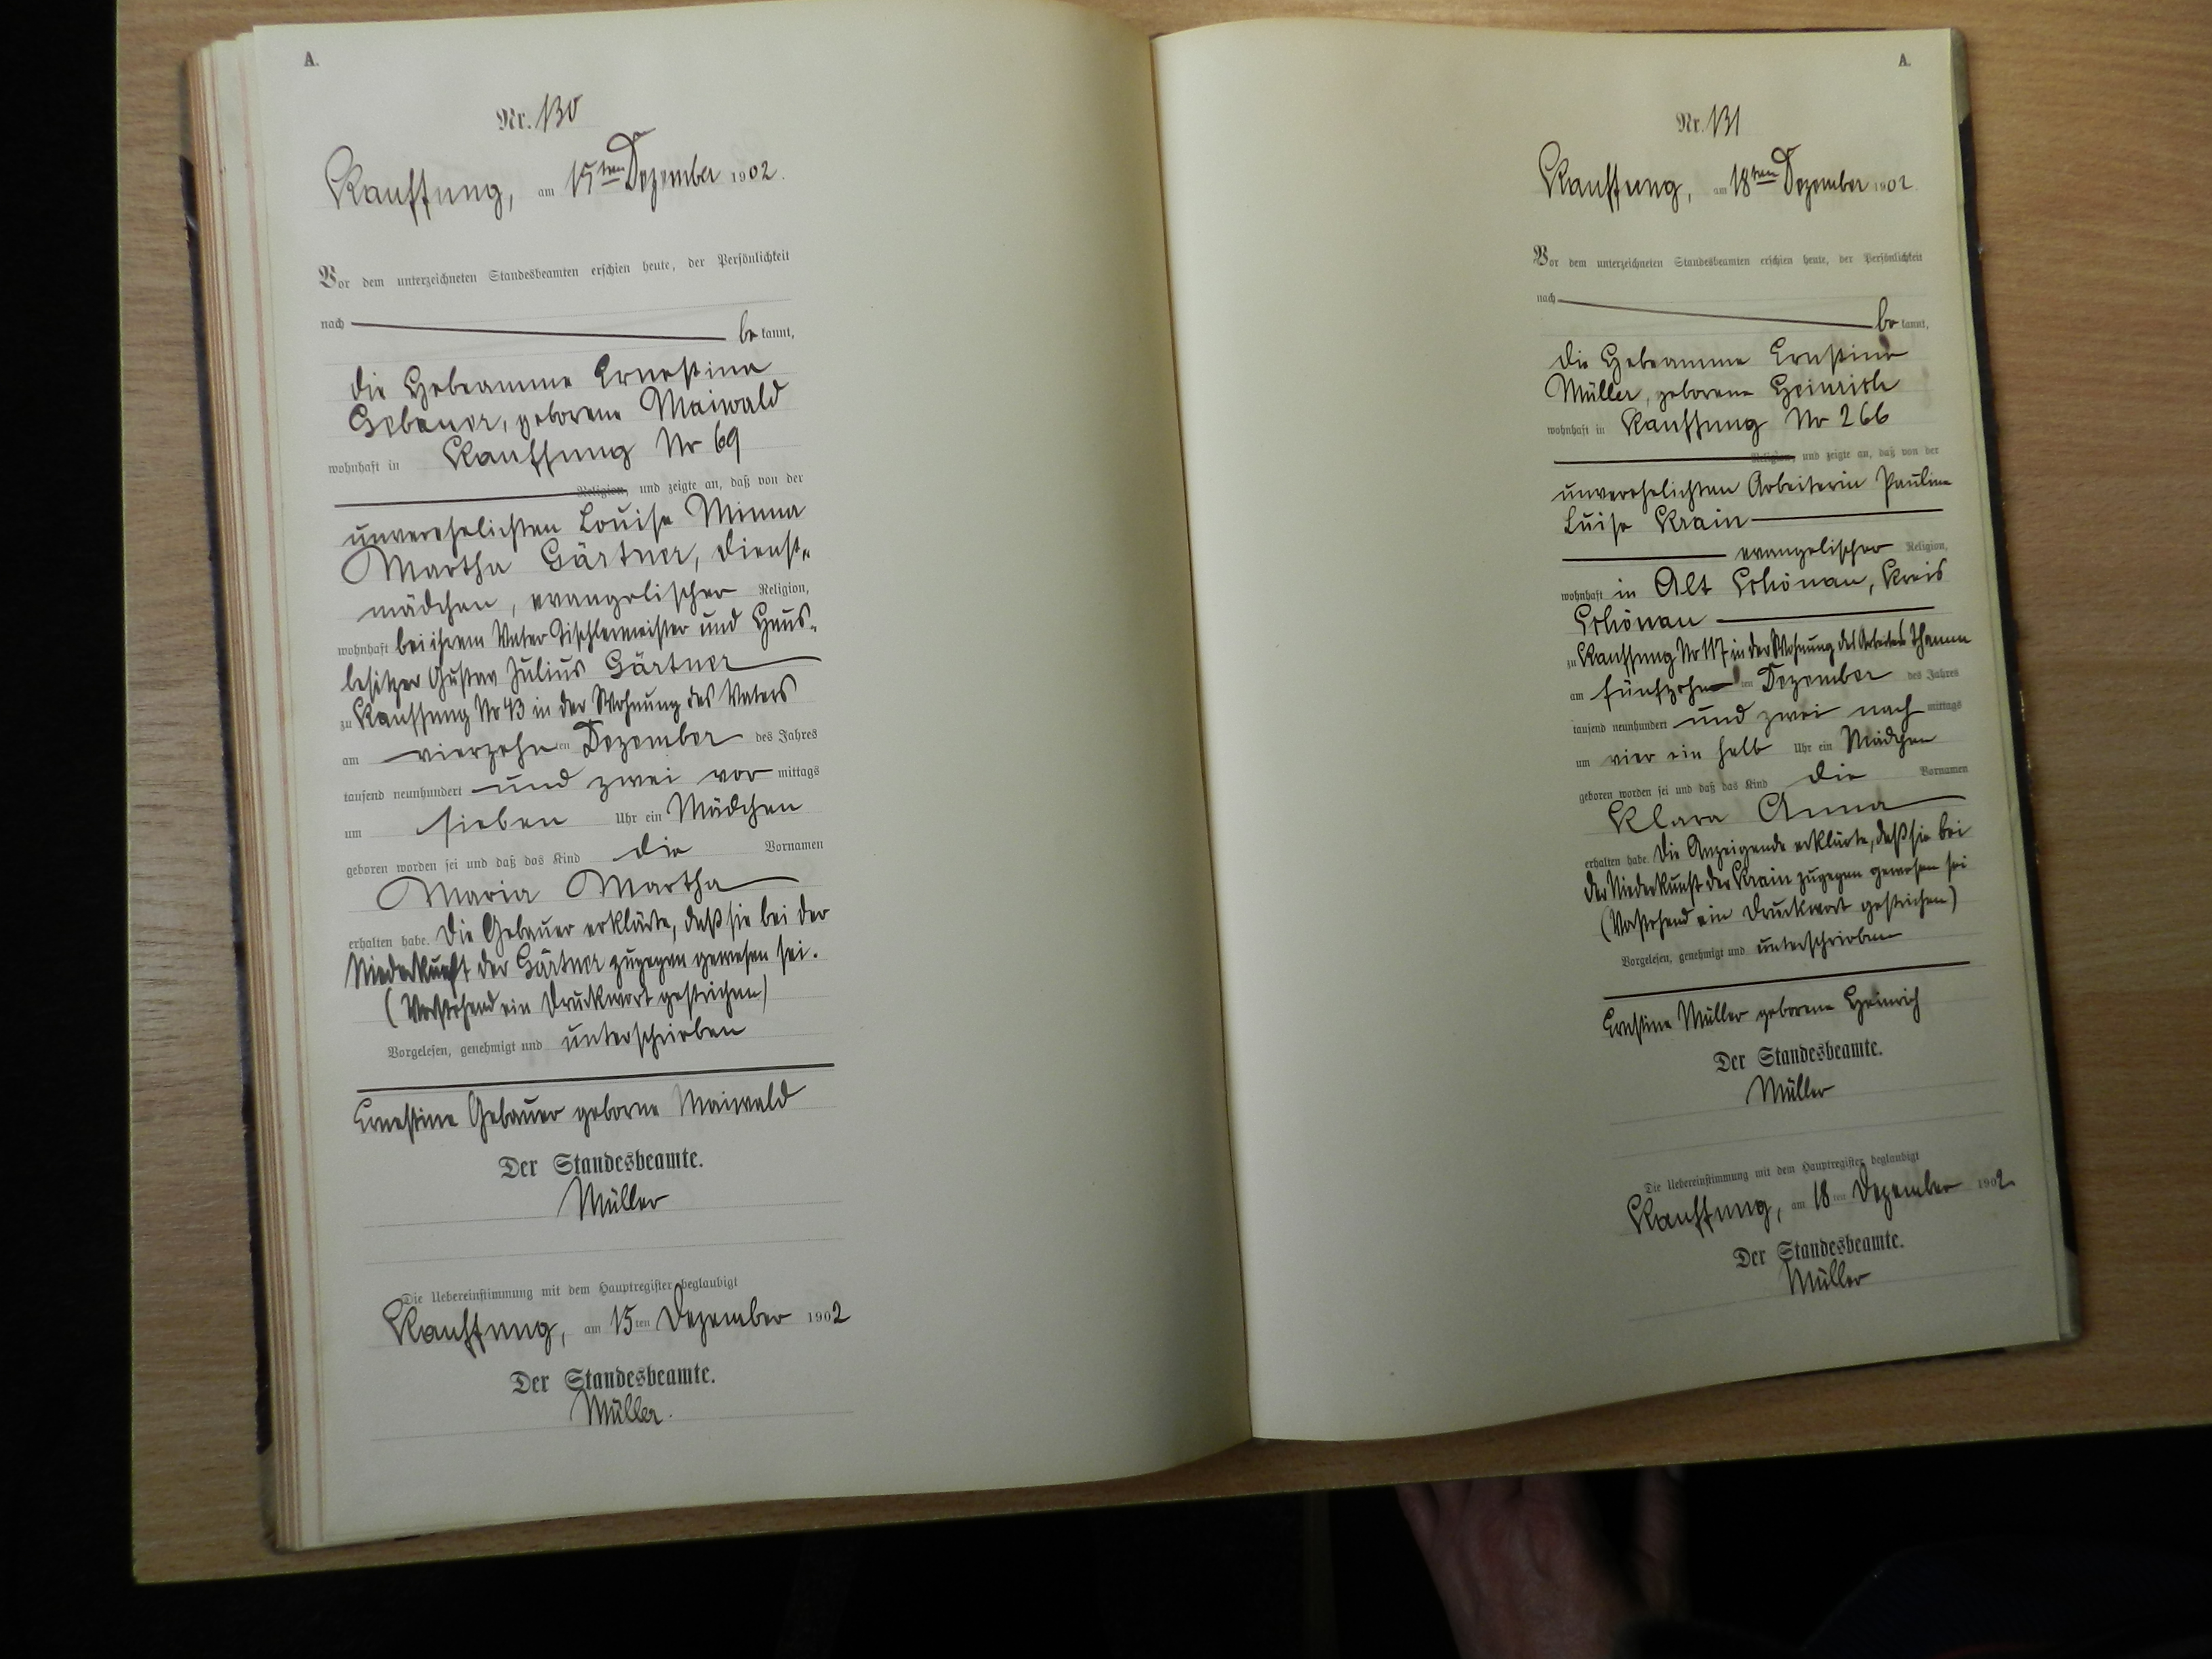 A.
Nr. 130
Kauffung, am 15ten Dezember 1902.
Vor dem unterzeichneten Standesbeamten erschien heute, der Persönlichkeit
nach be kannt,
die Hebeamme Ernestine
Gebauer, geborene Maiwald
wohnhaft in Kauffung Nr 69
Religion, und zeigte an, daß von der
unverehelichten Louise Minna
Martha Gärtner, Dienst-
mädchen, evangelischer Religion,
wohnhaft bei ihrem Vater Tischlermeister und Haus-
besitzer Gustav Julius Gärtner
zu Kauffung Nr 43 in der Wohnung des Vaters
am vierzehn ten Dezember des Jahres
tausend neunhundert und zwei vor mittags
um sieben Uhr ein Mädchen
geboren worden sei und daß das Kind die Vornamen
Maria Martha
erhalten habe. Die Gebauer erklärte, daß sie bei der
Niederkunft der Gärtner zugegen gewesen sei.
(Vorstehend ein Druckwort gestrichen)
Vorgelesen, genehmigt und unterschrieben
Ernestine Gebauer geborne Maiwald
Der Standesbeamte.
Müller
Die Uebereinstimmung mit dem Hauptregister beglaubigt
Kauffung, am 15 ten Dezember 1902
Der Standesbeamte.
Müller.
A.
Nr. 131
Kauffung, am 18ten Dezember 1902.
Vor dem unterzeichneten Standesbeamten erschien heute, der Persönlichkeit
nach be kannt,
die Hebeamme Ernstine
Müller, geborene Heinrich
wohnhaft in Kauffung Nr 266
Religion, und zeigte an, daß von der
unverehelichten Arbeiterin Pauline
Luise Krain
evangelischer Religion,
wohnhaft in Alt Schönau, Kreis
Schönau
zu Kauffung Nr 117 in der Wohnung des Arbeiters Thamm
am fünfzehn ten Dezember des Jahres
tausend neunhundert und zwei nach mittags
um vier ein halb Uhr ein Mädchen
geboren worden sei und daß das Kind die Vornamen
Klara Anna
erhalten habe. Die Anzeigende erklärte, daß sie bei
der Niederkunft der Krain zugegen gewesen sei
(Vorstehend ein Druckwort gestrichen)
Vorgelesen, genehmigt und unterschrieben
Ernstine Müller geborene Heinrich
Der Standesbeamte.
Müller
Die Uebereinstimmung mit dem Hauptregister beglaubigt
Kauffung, am 18 ten Dezember 1902.
Der Standesbeamte.
Müller